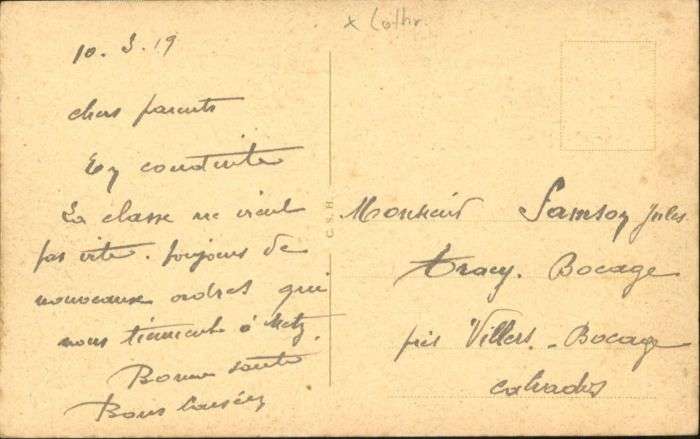 x Lothr.
10. 3. 19
chers parents
La classe ne vient
pas vite. Toujours de
nouveaux ordres qui
nous tiennent à Metz
Bonne santé
Bons baisers
C.S.H.
Monsieur Samson Jules
Tracy. Bocage
près Villers-Bocage
Calvados